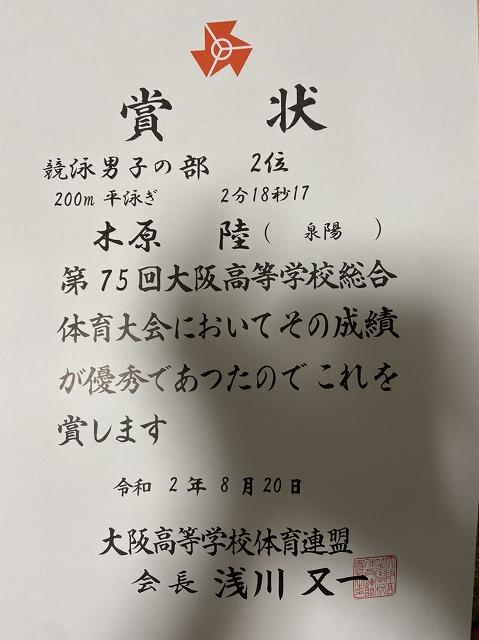 賞 状
競泳男子の部 2位
200m 平泳ぎ 2分18秒17
木原 陸 ( 泉陽 )
第75回大阪高等学校総合
体育大会においてその成績
が優秀であつたのでこれを
賞します
令和 2 年 8 月 20 日
大阪高等学校体育連盟
会長 浅川 又一